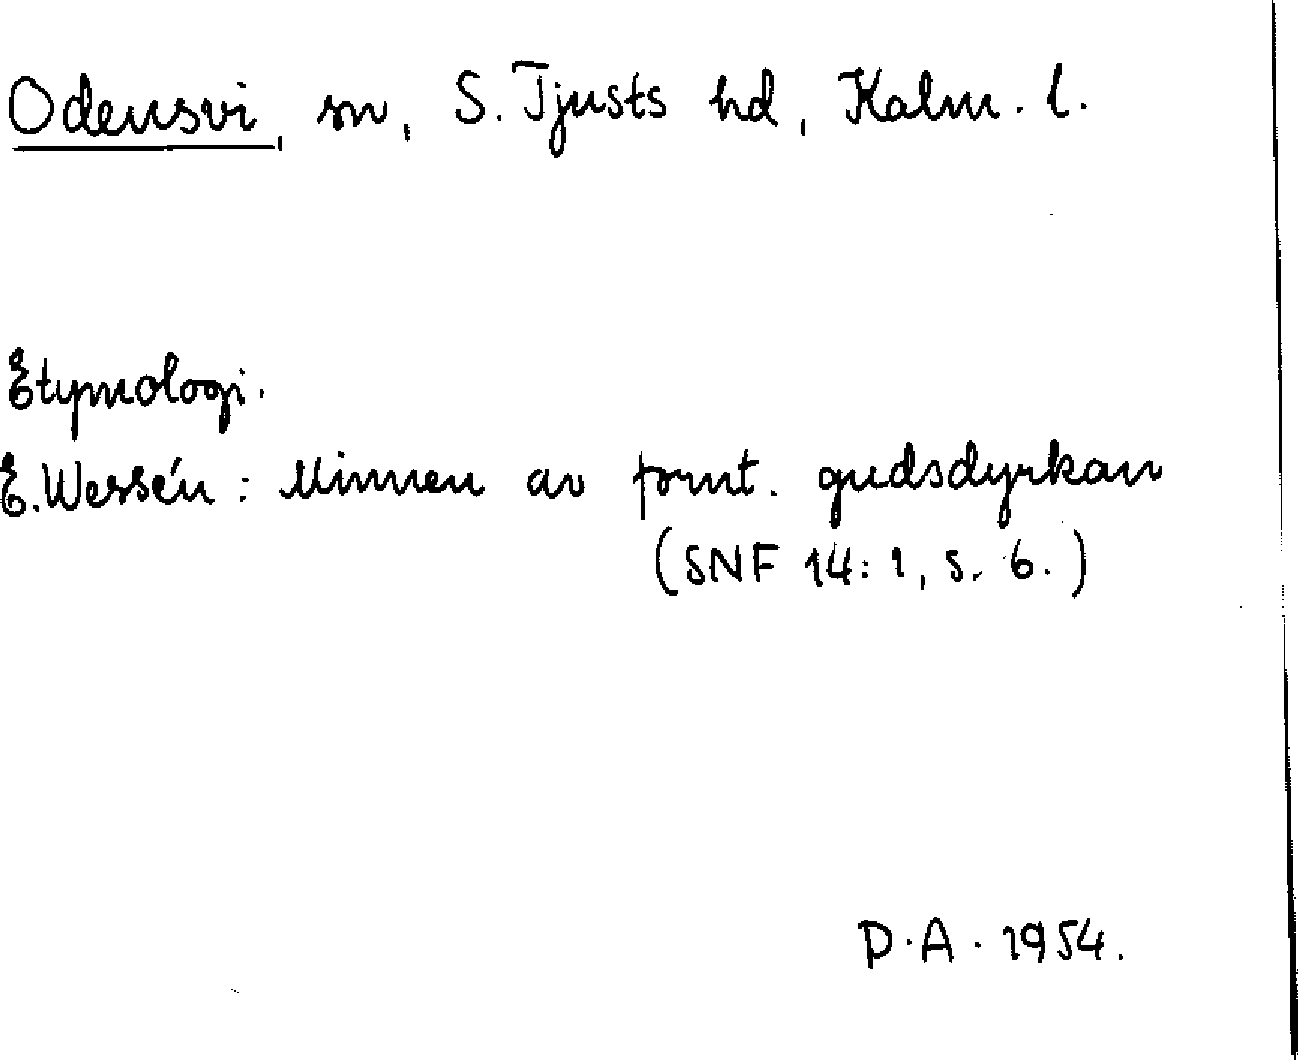 Odensvi, sn, S. Tjusts hd, Kalm. l.
Etymologi.
E. Wessén: Minnen av fornt. gudsdyrkan
(SNF 14:1, s. 6.)
D.A. 1954.